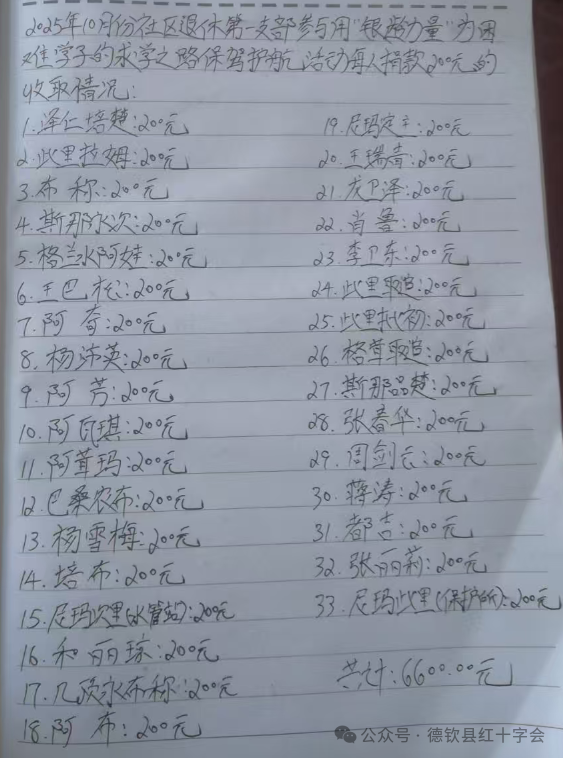 2025年10月份社区退休第一支部参与用"银龄力量"为困
难学子的求学之路保驾护航活动每人捐款200元的
收取情况:
1.泽仁培楚:200元
2.此里拉姆:200元
3.布称:200元
4.斯那次:200元
5.格兰水阿娃:200元
6.王巴松:200元
7.阿奇:200元
8.杨沛英:200元
9.阿芳:200元
10.阿瓦琪:200元
11.阿茸玛:200元
12.巴桑农布:200元
13.杨雪梅:200元
14.培布:200元
15.尼玛次里(水管站):200元
16.和丽琼:200元
17.水布称:200元
18.阿布:200元
19.尼玛定主:200元
20.王瑞青:200元
21.龙卫泽:200元
22.肖鲁:200元
23.李卫东:200元
24.此里取追:200元
25.此里扎初:200元
26.格茸取追:200元
27.斯那品楚:200元
28.张春华:200元
29.周剑云:200元
30.蒋涛:200元
31.都吉:200元
32.张丽莉:200元
33.尼玛此里(保护所):200元
共计:6600.00元
公众号·德钦县红十字会